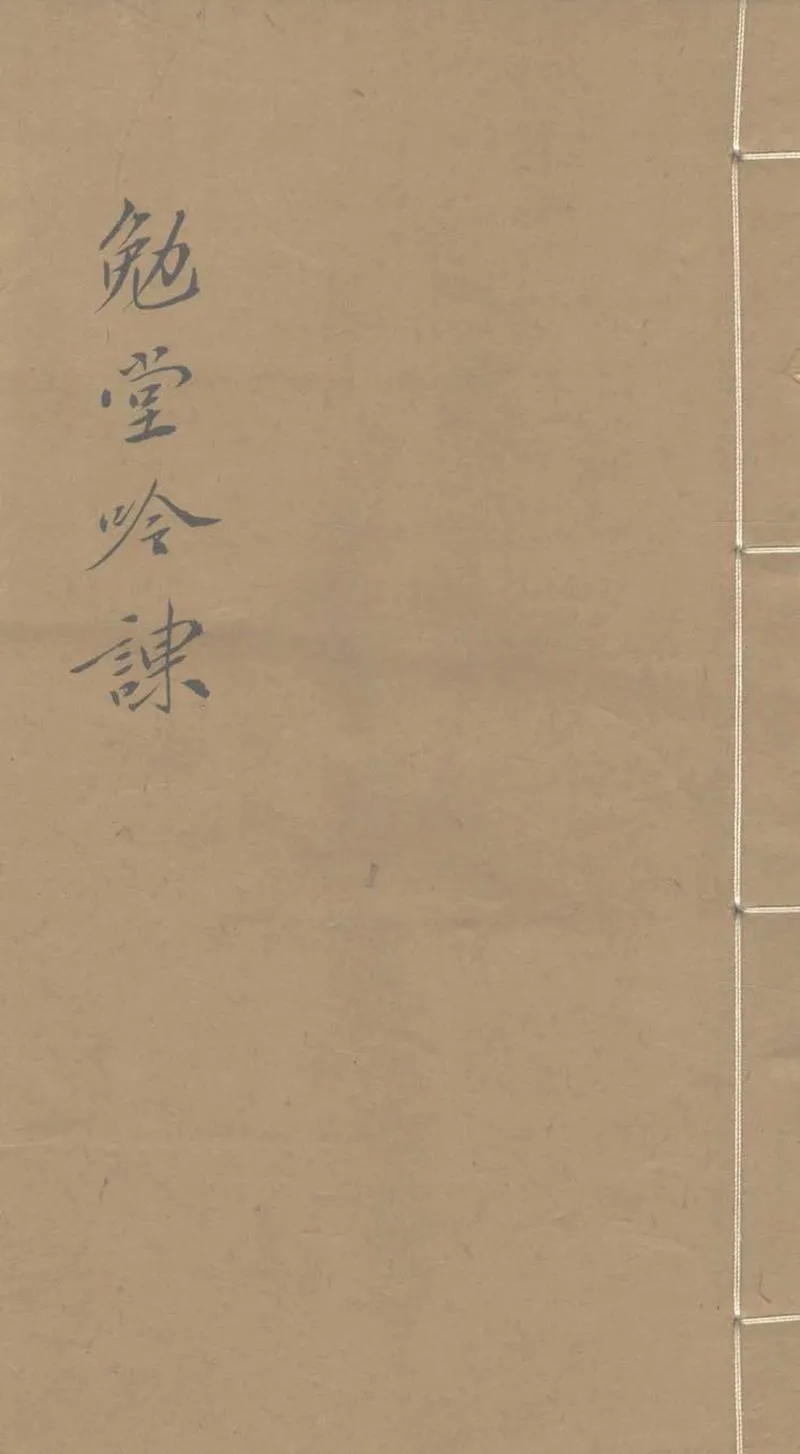 勉堂吟課